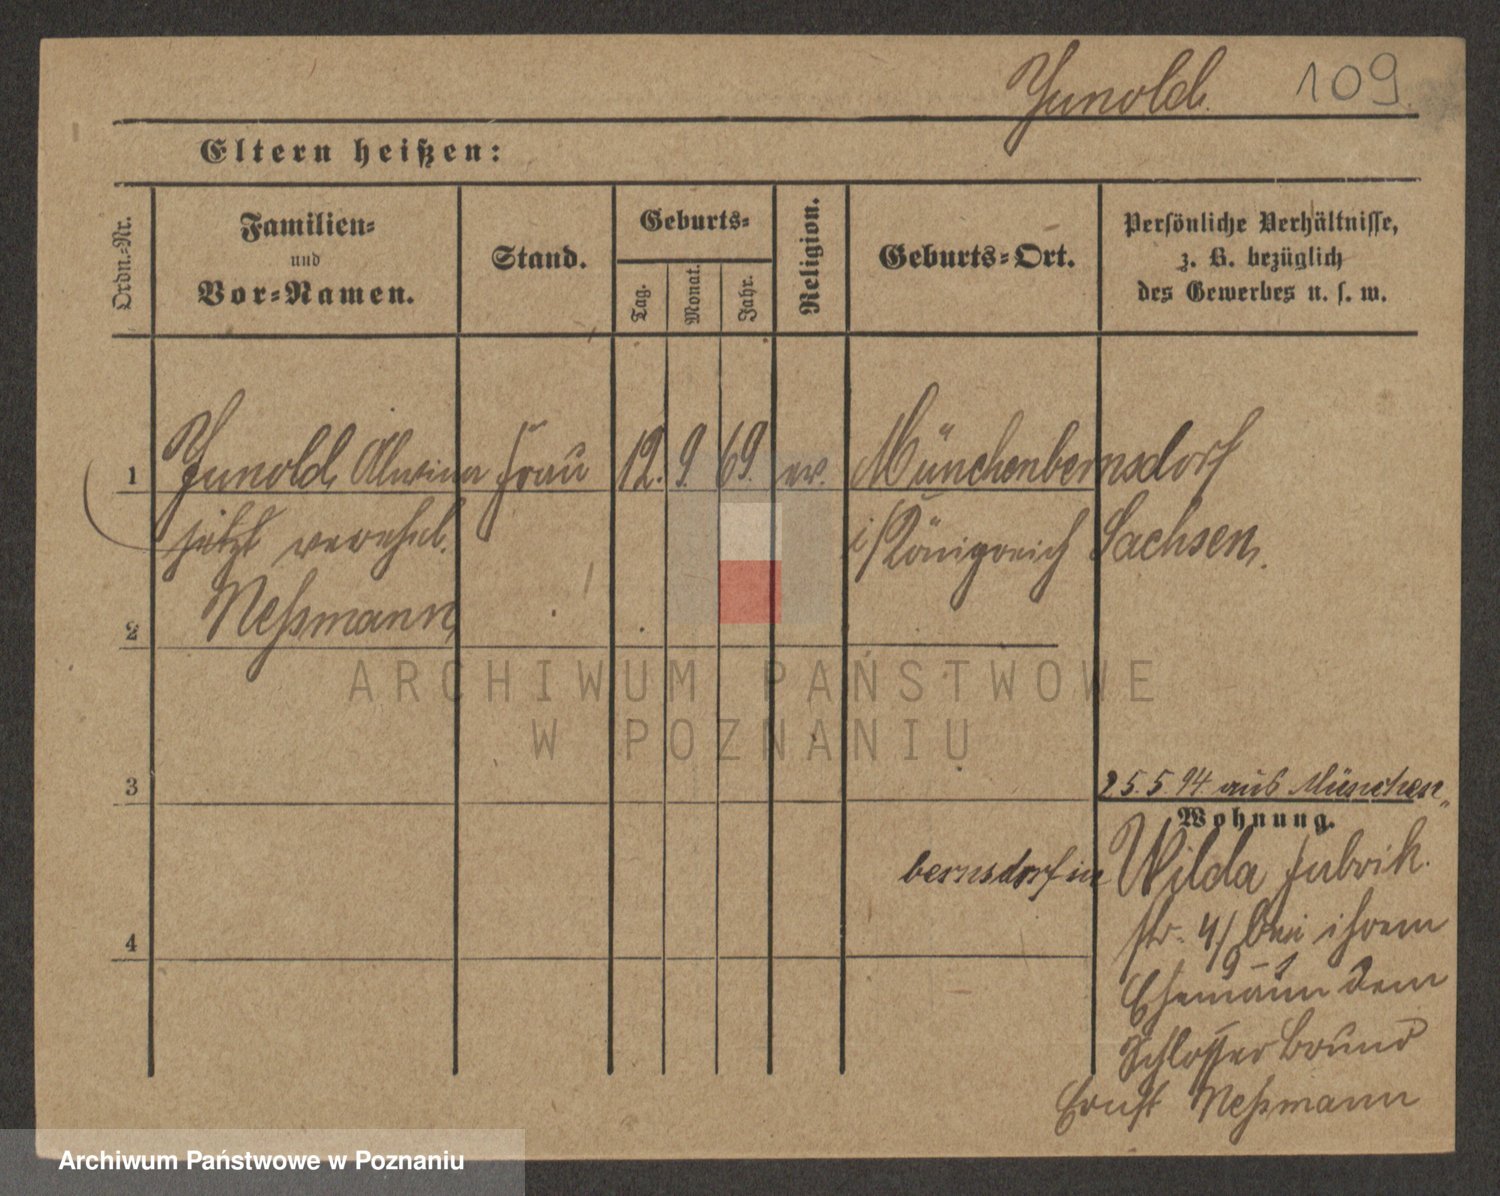 Junold. 109.
Eltern heißen:
Ordn.-Nr.
Familien-
und
Vor-Namen.
Stand.
Geburts-
Tag.
Monat.
Jahr.
Religion.
Geburts-Ort.
Persönliche Verhältnisse,
z. B. bezüglich
des Gewerbes u. s. w.
1 Junold, Alwina Frau 12. 9. 69. ev. Münchenbernsdorf
jetzt verehel. i/Königreich Sachsen.
2 Neßmann,
ARCHIWUM PAŃSTWOWE
W POZNANIU
3 25.5.94 aus München-
Wohnung.
bernsdorf in Wilda Fabrik.
str. 41 bei ihrem
4
Ehemann dem
Schlosser Bruno
Ernst Neßmann
Archiwum Państwowe w Poznaniu